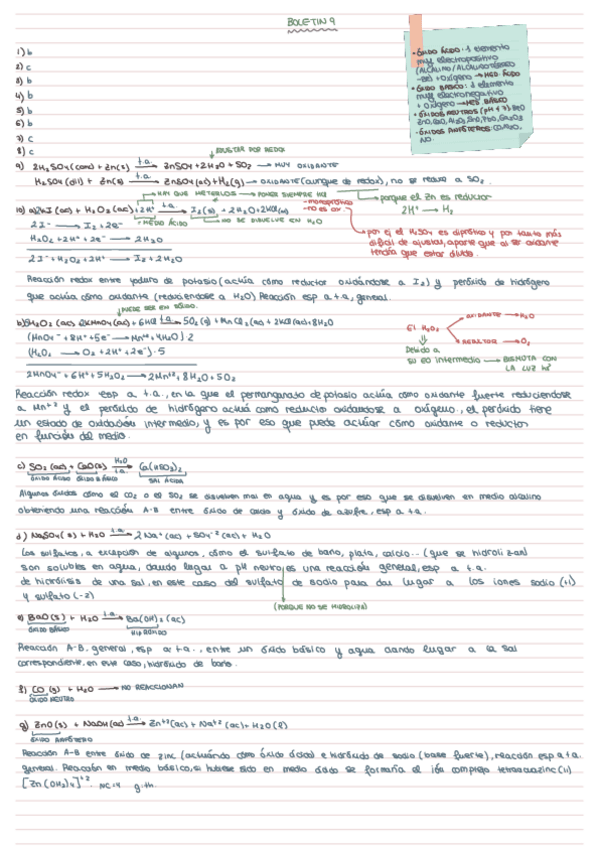 BOLETIN 9
• ÓXIDO ÁCIDO: 1 elemento
muy electropositivo
(ALCALINO/ALCALINOTÉRREO
+ Oxígeno → MED. ÁCIDO
• ÓXIDO BASICO: 1 elemento
muy electronegativo
+ Oxígeno → MED BÁSICO
• ÓXIDOS NEUTROS (pH = 7): BeO
ZnO, Al₂O₃, SnO, PbO, Ga₂O₃
• ÓXIDOS ANFÓTEROS: CO, N₂O,
NO
1) b
2) c
3) b
4) b
5) b
6) b
7) c
8) c
AJUSTAR POR REDOX
9) 2H₂SO₄(conc) + Zn(s) t.a. → ZnSO₄ + 2H₂O + SO₂ → MUY OXIDANTE
H₂SO₄(dil) + Zn(s) t.a. → ZnSO₄(ac) + H₂(g) → OXIDANTE (aunque de redox), no se reduce a SO₂.
→ HAY QUE METERLOS → PONER SIEMPRE HCl
- monoprótico
- no es ox.
→ porque el Zn es reductor
2H⁺ → H₂
10) a) 2KI (ac) + H₂O₂ (ac) + 2H⁺ t.a. → I₂(s) + 2H₂O + 2KCl(ac)
2I⁻ → I₂ + 2e⁻
→ MEDIO ÁCIDO
→ NO SE DISUELVE EN H₂O
H₂O₂ + 2H⁺ + 2e⁻ → 2H₂O
2I⁻ + H₂O₂ + 2H⁺ → I₂ + 2H₂O
→ por ej el H₂SO₄ es diprótico y por tanto más
difícil de ajustar, aparte que al ser oxidante
tendría que estar diluido.
Reacción redox entre yoduro de potasio (actúa como reductor oxidándose a I₂) y peróxido de hidrógeno
que actúa como oxidante (reduciéndose a H₂O) Reacción esp a t.a, general.
→ PUEDE SER EN SÓLIDO.
b) 5H₂O₂ (ac) + 2KMnO₄(ac) + 6HCl t.a. → 5O₂(g) + MnCl₂(ac) + 2KCl(ac) + 8H₂O
(MnO₄⁻ + 8H⁺ + 5e⁻ → Mn²⁺ + 4H₂O) 2
(H₂O₂ → O₂ + 2H⁺ + 2e⁻) · 5
2MnO₄⁻ + 6H⁺ + 5H₂O₂ → 2Mn²⁺ + 8H₂O + 5O₂
El H₂O₂
OXIDANTE → H₂O
REDUCTOR → O₂
Debido a
su EO intermedio → DISMUTA CON
LA LUZ
Reacción redox esp a t.a., en la que el permanganato de potasio actúa como oxidante fuerte reduciendose
a Mn⁺² y el peróxido de hidrógeno actuá como reductor oxidandose a oxígeno., el peróxido tiene
un estado de oxidación intermedio, y es por eso que puede actúar cómo oxidante o reductor
en función del medio.
c) SO₂ (ac) + CaO(s) H₂O t.a. → Ca(HSO₃)₂
ÓXIDO ÁCIDO ÓXIDO BÁSICO SAL ÁCIDA
Algunos óxidos cómo el CO₂ o el SO₂ se disuelven mal en agua y es por eso que se disuelven en medio alcalino
obteniendo una reacción A-B entre óxido de calcio y óxido de azufre, esp a t.a.
d) Na₂SO₄(s) + H₂O t.a. → 2 Na⁺ (ac) + SO₄⁻² (ac) + H₂O
Los sulfatos, a excepción de algunos, cómo el sulfato de bario, plata, calcio... (que se hidrolizan)
son solubles en agua, dando lugar a pH neutro, es una reacción general, esp a t.a.
de hidrólisis de una sal, en este caso del sulfato de sodio para dar lugar a los iones sodio (+1)
y sulfato (-2)
(PORQUE NO SE HIDROLIZA)
e) BaO(s) + H₂O t.a. → Ba(OH)₂ (ac)
ÓXIDO BÁSICO HIDRÓXIDO
Reacción A-B, general, esp a t.a., entre un óxido básico y agua dando lugar a la sal
correspondiente, en este caso, hidróxido de bario.
f) CO (g) + H₂O → NO REACCIONAN
ÓXIDO NEUTRO
g) ZnO(s) + NaOH(ac) t.a. → Zn⁺²(ac) + Na⁺²(ac) + H₂O(l)
ÓXIDO ANFÓTERO
Reacción A-B entre óxido de zinc (actuándo cómo óxido ácido) e hidróxido de sodio (base fuerte), reacción esp a t.a
general. Reacción en medio básico, si hubiese sido en medio ácido se formaría el ión complejo tetraaquazinc(II)
[Zn(OH₂)₄]⁺². NC:4 g:th.